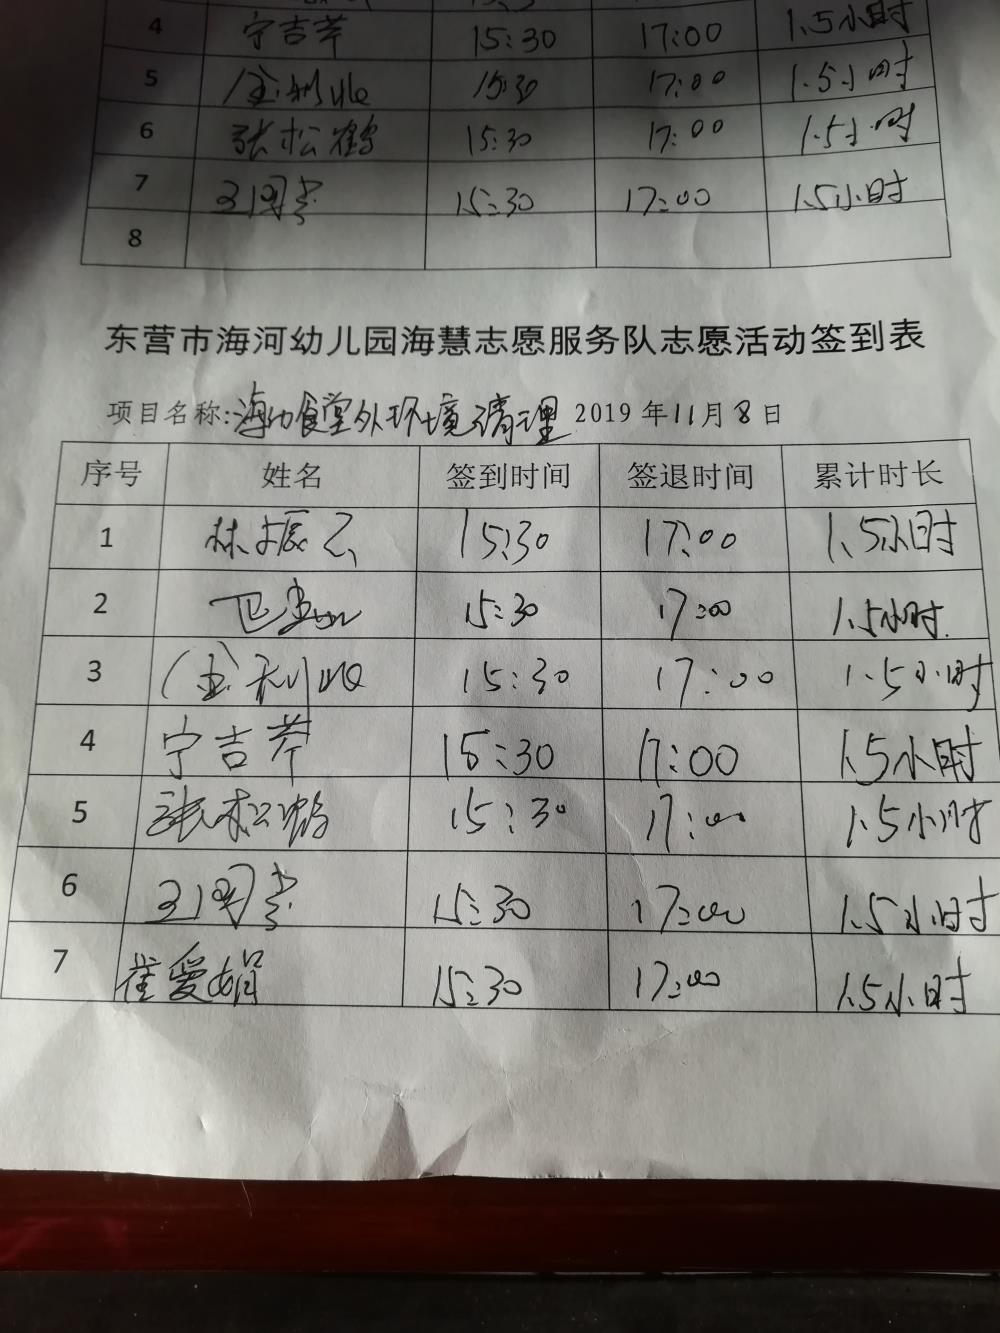 4 宁吉芹 15:30 17:00 1.5小时
5 15:30 17:00 1.5小时
6 张松鹤 15:30 17:00 1.5小时
7 15:30 17:00 1.5小时
8
东营市海河幼儿园海慧志愿服务队志愿活动签到表
项目名称:海幼食堂外环境清理 2019年11月8日
序号 姓名 签到时间 签退时间 累计时长
1 林振云 15:30 17:00 1.5小时
2 15:30 17:00 1.5小时
3 15:30 17:00 1.5小时
4 宁吉芹 15:30 17:00 1.5小时
5 张松鹤 15:30 17:00 1.5小时
6 15:30 17:00 1.5小时
7 崔爱娟 15:30 17:00 1.5小时